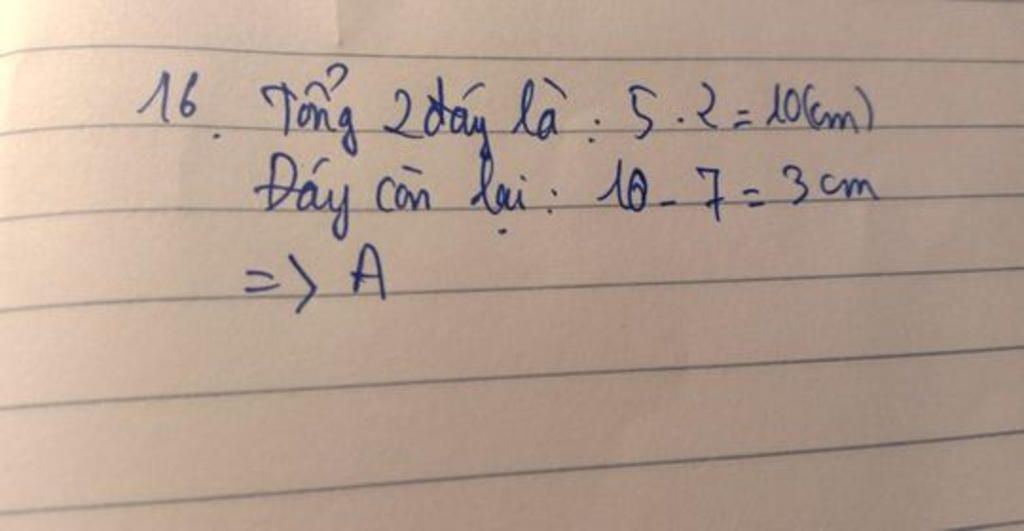 16. Tổng 2 đáy là : 5 . 2 = 10(cm)
Đáy còn lại : 10 - 7 = 3 cm
=> A